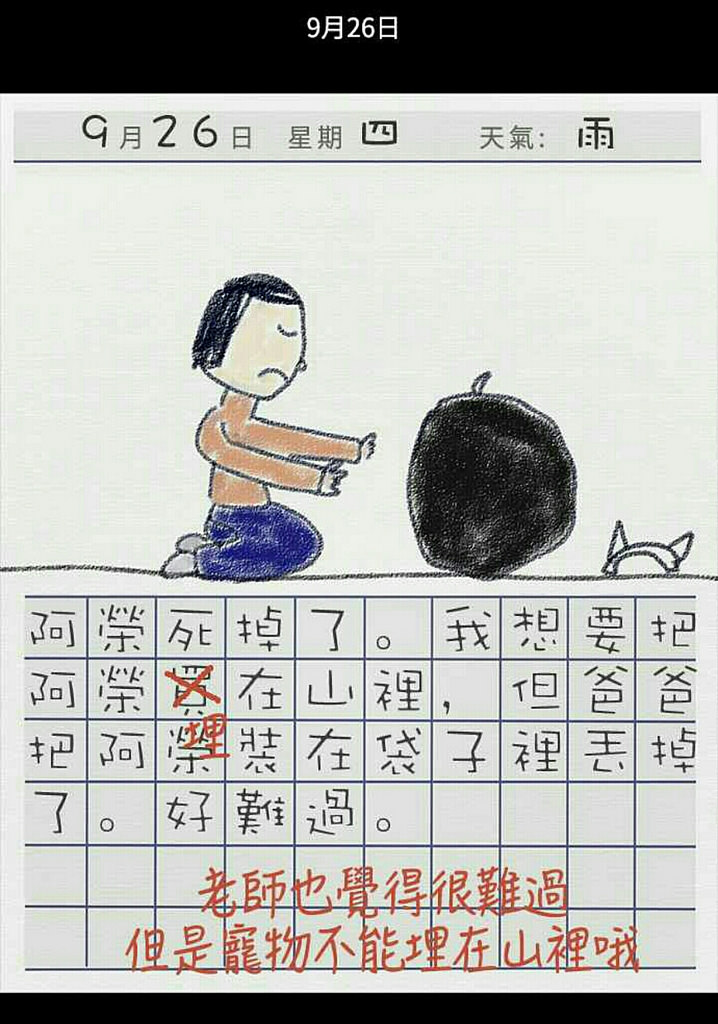 9月26日
9月26日 星期四 天氣: 雨
阿榮死掉了。我想要把
阿榮買在山裡,但爸爸
埋
把阿榮裝在袋子裡丟掉
了。好難過。
老師也覺得很難過
但是寵物不能埋在山裡哦